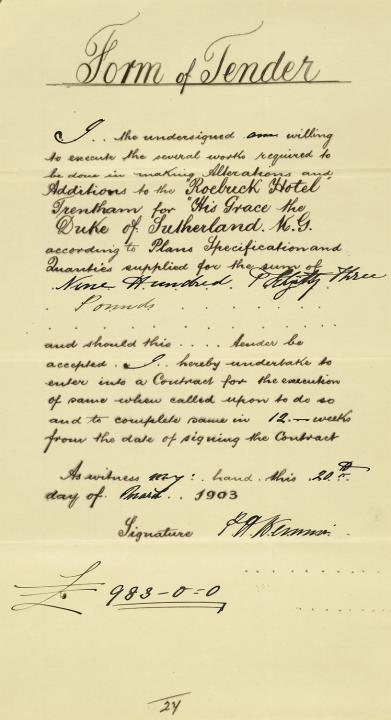 Form of Tender
I . . the undersigned am willing
to execute the several works required to
be done in making Alterations and
Additions to the "Roebuck Hotel"
Trentham for "His Grace the
Duke of Sutherland. K.G.
according to Plans Specification and
Quanties supplied for the sum of
Nine Hundred & Eighty Three
Pounds
and should this . . . . tender be
accepted . I . . hereby undertake to
enter into a Contract for the execution
of same when called upon to do so
and to complete same in 12 weeks
from the date of signing the Contract
As witness my : hand this 20th
day of . . 1903
Signature
£ 983-0-0
24